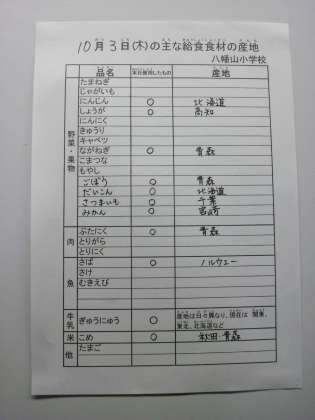 10月3日(木)の主な給食食材の産地
八幡山小学校
品名 本日使用したもの 産地
野菜・果物
たまねぎ
じゃがいも
にんじん ○ 北海道
しょうが ○ 高知
にんにく
きゅうり
キャベツ
ながねぎ ○ 青森
こまつな
もやし
ごぼう ○ 青森
だいこん ○ 北海道
さつまいも ○ 千葉
みかん ○ 宮崎
肉
ぶたにく ○ 青森
とりがら
とりにく
魚
さば ○ ノルウェー
さけ
むきえび
牛乳
ぎゅうにゅう ○ 産地は日々異なり、現在は 関東、
東北、北海道など
米 こめ ○ 秋田・青森
他 たまご